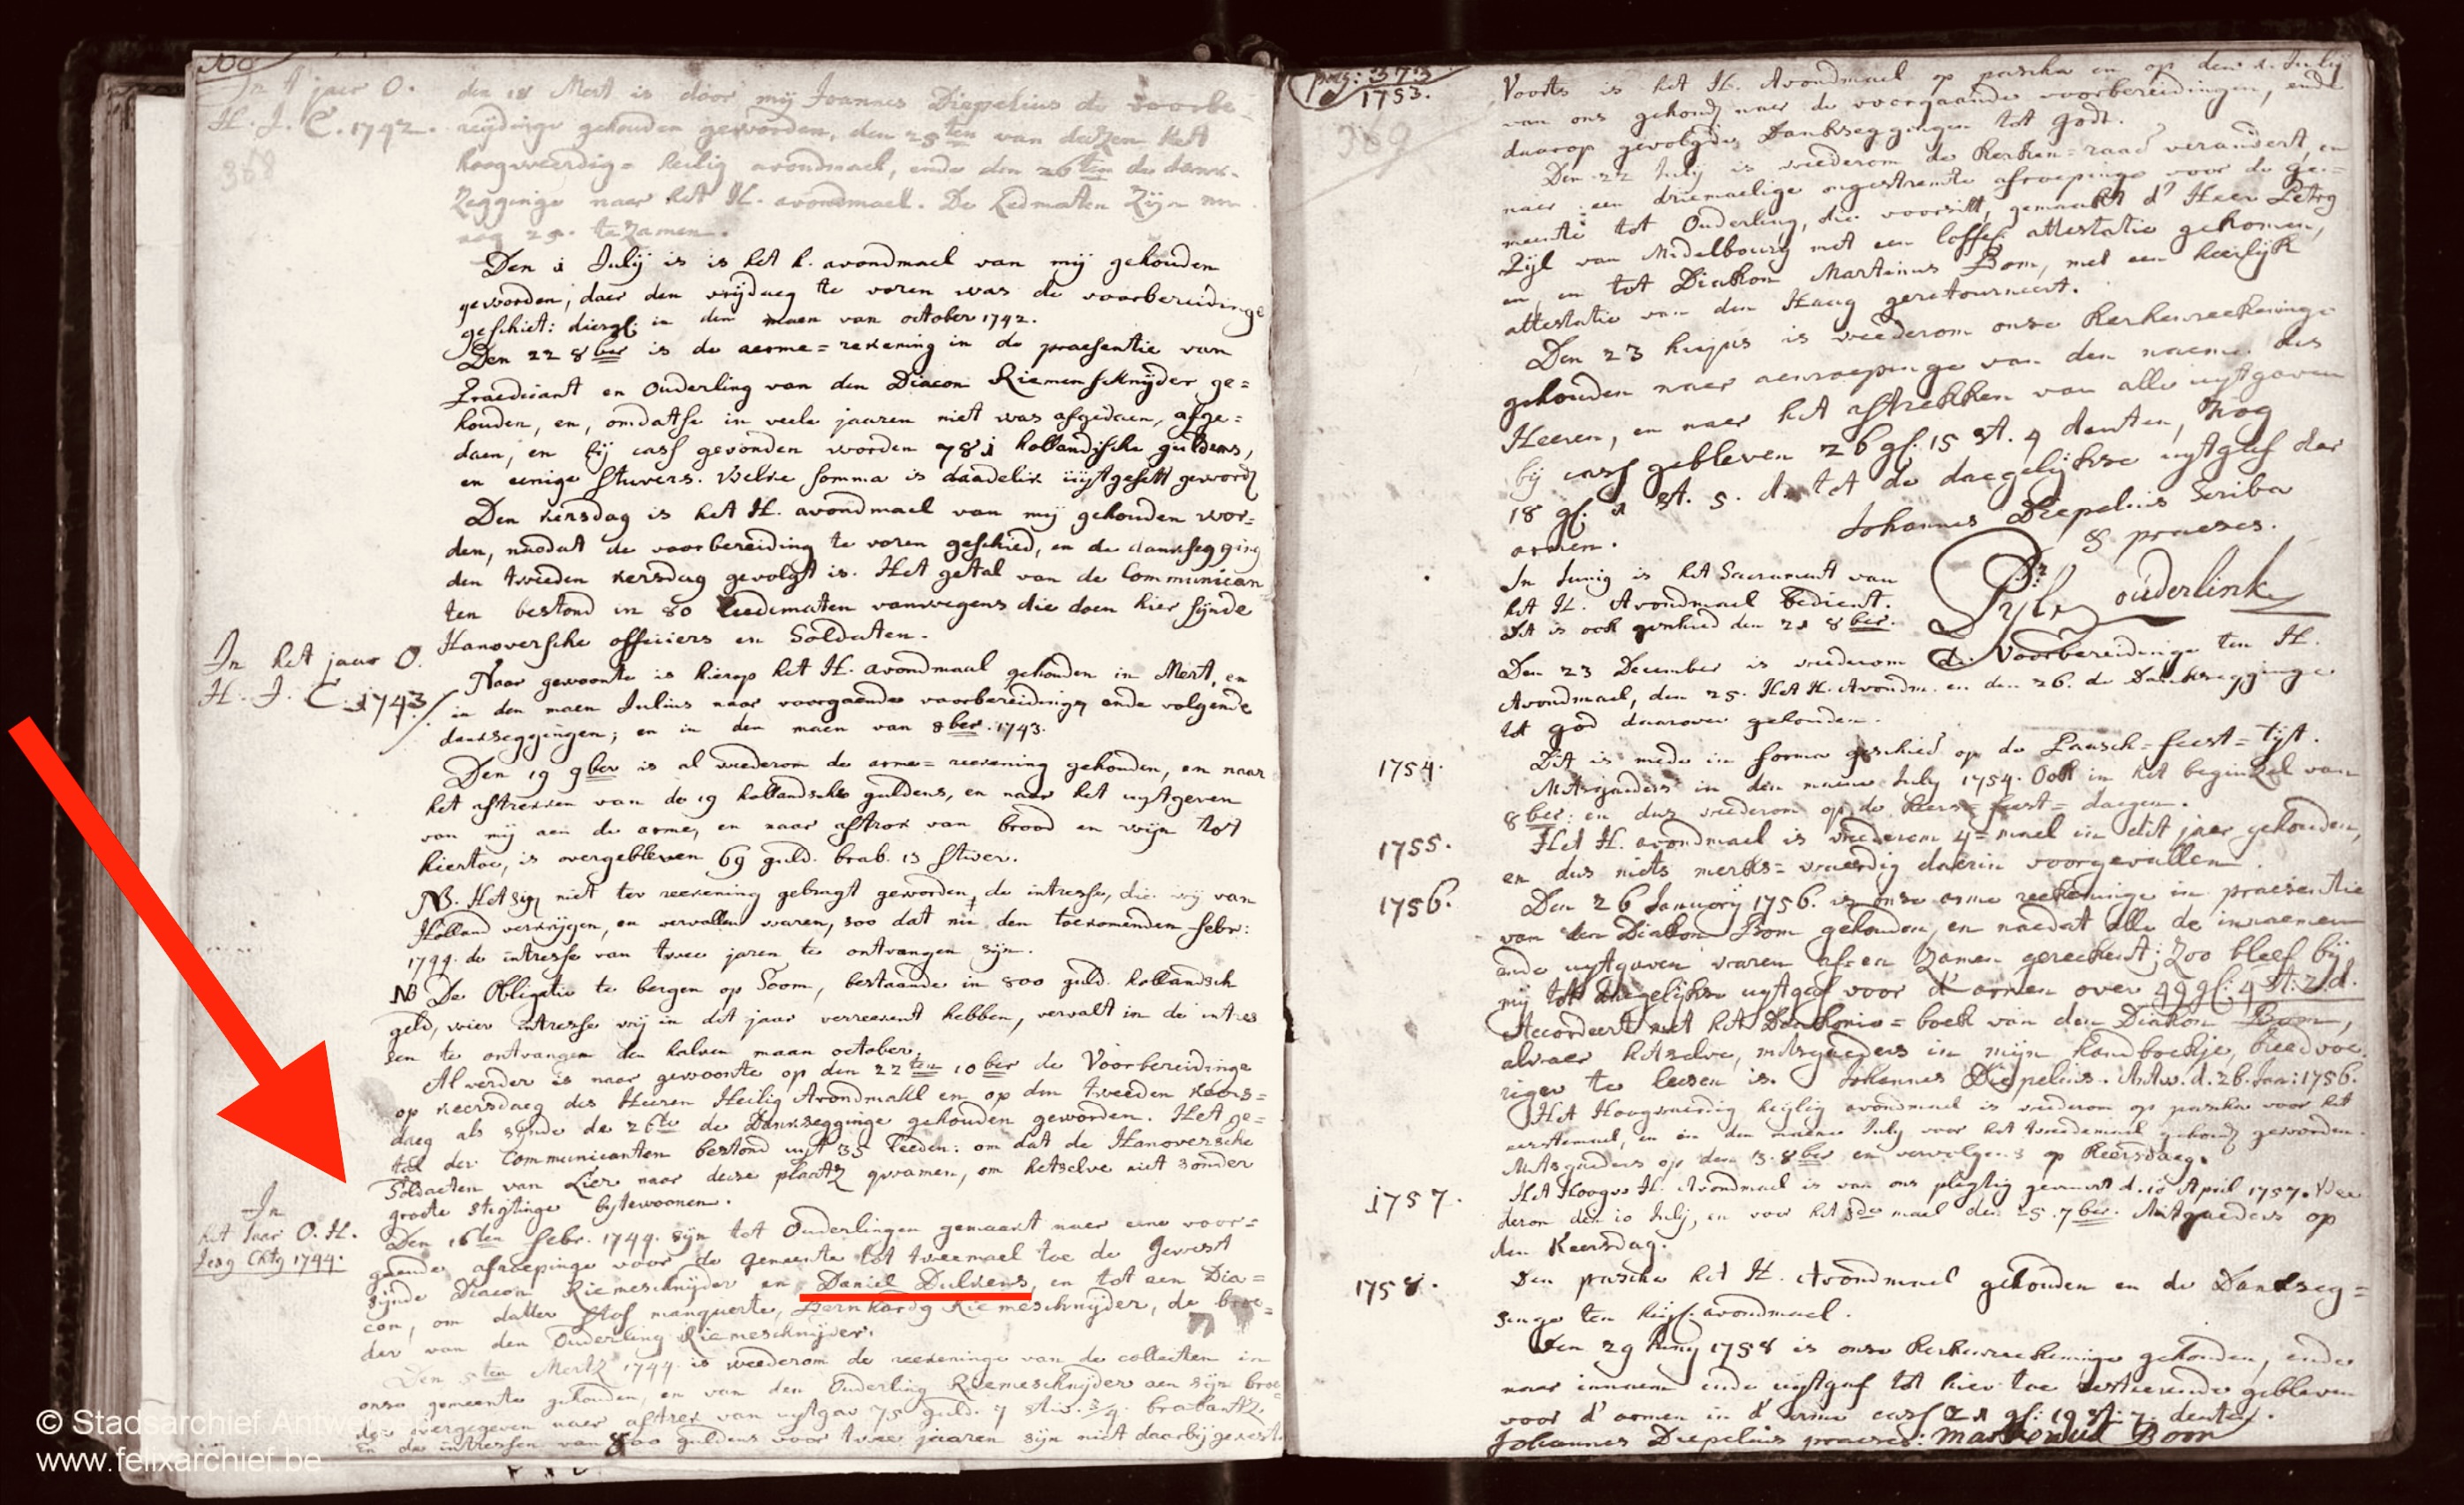 100
In t jaer O.
H. J. C. 1742.
368
den 18 Mert is door mij Joannes Diepelius de voorbe-
reijdinge gehouden geworden, den 25ten van deezen het
hoogweerdig= heilig avondmael, ende den 26ten de dank-
zegginge naer het H. avondmael. De Ledmaten zijn
25. te zamen.
Den 1 Julij is is het h. avondmael van mij gehouden
geworden, daer den vrijdaeg te voren was de voorbereidinge
geschiet: diergl: in den maen van october 1742.
Den 22 8ber is de aerme=rekening in de praesentie van
Praedicant en Ouderling van den Diacon Riemenschnijder ge=
houden, en, omdatse in veele jaaren niet was afgedaen, afge=
daen, en bij cass gevonden worden 781 hollandische guldens,
en eenige stuvers. Welke somma is daadelik uijtgesett geword
Den kersdag is het H. avondmael van mij gehouden wor=
den, naodat de voorbereiding te voren geschied, en de dankseggging
den tweeden kersdag gevolgt is. Het getal van de Communican
ten bestond in 80 Leedematen vanwegens die doen hier sijnde
Hanoversche officiers en Soldaten.
In het jaar O.
H. J. C. 1743
Naar gewoonte is hierop het H. avondmaal gehouden in Mert, en
in den maen Julius naar voorgaende voorbereiding ende volgende
dankseggingen; en in den maen van 8ber. 1743.
Den 19 9ber is al wiederom de arme=rekening gehouden, en naar
het aftrekken van de 19 hollandsche guldens, en naar het uytgeven
van mij aen de arme, en naar aftrok van brood en wijn tot
hiertoe, is overgebleven 69 guld. brab. 13 stiver.
NB. Het sij niet ter reekening gebragt geworden, de intresse, die wij van
Holland verkrijgen, en vervallen waren, soo dat nu den toekomenden febr:
1744. de intresse van twee jaren te ontvangen sijn.
NB De Obligatie te bergen op Soom, bestaande in 800 guld. hollandsch
geld, wier intresse wij in dit jaar verreekent hebben, vervalt in de intres
sen te ontvangen den halven maan october.
Al verder is naar gewoonte op den 22ten 10ber de Voorbereidinge
op keersdaeg des Heeren Heilig Avondmaal en op den tweeden keers=
daeg als sijnde de 26te de Dankzegginge gehouden geworden. Het ge=
tal der Communicanten bestond uijt 35 Leeden: om dat de Hanoversche
Soldaeten van Lier naar deese plaatz qwamen, om hetselve niet sonder
groote stigtinge bijtewoonen.
In
het Jaar O. H.
Jesu Chty 1744.
Den 16ten febr. 1744. sijn tot Ouderlingen gemaakt naer eene voor=
gaende afroepinge voor de gemeente tot tweemael toe de gewest
sijnde Diacon Riemeschnijder en Daniel Dulkens, en tot aen Dia=
con, om datter stof manquerte, Bernhardg Riemeschnijder, de broe=
der van den Ouderling Riemeschnijder.
Den 5ten Mertz 1744 is weederom de reekeninge van de collecten in
onse gemeente gehouden, en van den Ouderling Riemeschnijder aen sijn broe=
der overgegeven naer aftrek van uytgav 75 guld. 7 stiv. 3/4. brabantz
en de intressen van 800 guldens voor twee jaaren sijn niet daarbij gereek
pag: 373
1753.
369
Voorts is het H. Avondmael op pascha en op den 1. July
van ons gehoud naer de voorgaande voorbereidingen, ende
daarop gevolgde Dankseggingen tot Godt.
Den 22 July is wiederom de Kerken=raad verandert, en
naer een driemaelige ongestremte afroepinge voor de ge=
meente tot Ouderling, die voorsitt, gemaakt d' Heer Petrg
Zijl van Midelbourg met een loffel attestatie gekomen,
en tot Diakon Martinus Bom, met een heerlijk
attestatie van den Haag geretourneert.
Den 23 hujus is wiederom onse Kerkenreekeninge
gehouden naer aenroepinge van den naeme des
Heeren, en naer het aftrekken van alle uytgaven
bij cass gebleven 26 gl. 15 st. 4 denten, nog
18 gl. 1 st. 5. d. tot de daegelijkse uytgif der
armen.
Johannes Diepelius Scriba
& praeses.
Pr: Zyl ouderlink
In Junig is het Sacrament van
het H. Avondmael Bedient.
dit is ook geschied den 21 8ber.
Den 23 December is wiederom de Voorbereidinge ten H.
Avondmael, den 25. Het H. Avondm. en den 26. de Dankzegginge
tot god daarover gehouden.
1754.
Dit is mede in forma geschied op de Paasch=feest=tijt.
Mitsgaeders in den maene July 1754. Ook in het beginzel van
8ber: en dus wiederom op de Kers=feest=daegen.
1755.
Het H. avondmael is wiederom 4=mael in dit jaer gehouden,
en dus niets merks=waerdig daerin voorgevallen.
1756.
Den 26 January 1756. is onse arme reekeninge in praesentie
van den Diakon Bom gehouden, en naedat alle de innaemen
ende uytgaven waren af en zamen gereekent; Zoo bleef bij
mij tot daegelijkse uytgaf voor d' armen over 49 gl: 4 st: 2. d.
Accordeert met het Diakonie=boek van den Diakon Bom,
alwaer hetselve, mitsgaeders in mijn handboekje, breedvoe
riger te leesen is. Johannes Diepelius. Antw. d. 26. Jan: 1756.
Het Hoogwaerdig heylig avondmael is wiederom op pascha voor het
eerstemael, en in den maene July voor het tweedemael gehoud geworden.
Mitsgaders op den 3. 8ber en vervolgens op Keersdaeg.
1757.
Het Hoogw H. Avondmael is van ons plegtig geviert d. 10 April 1757. Wee
derom den 10 July, en voor het 3de mael den 25. 7ber. Mitsgaeders op
den Keersdag.
1758.
Den pascha het H. Avondmael gehouden en de Dankseg=
ginge ten avondmael.
Den 29 Juny 1758 is onse Kerkenreekeninge gehouden, ende
naer innaem ende uytgaf tot hier toe gebleven
voor d' armen in d' arme cass 21 gl: 19 st: 7. denten.
Johannes Diepelius praeses: Martinus Boon
© Stadsarchief Antwerpen
www.felixarchief.be